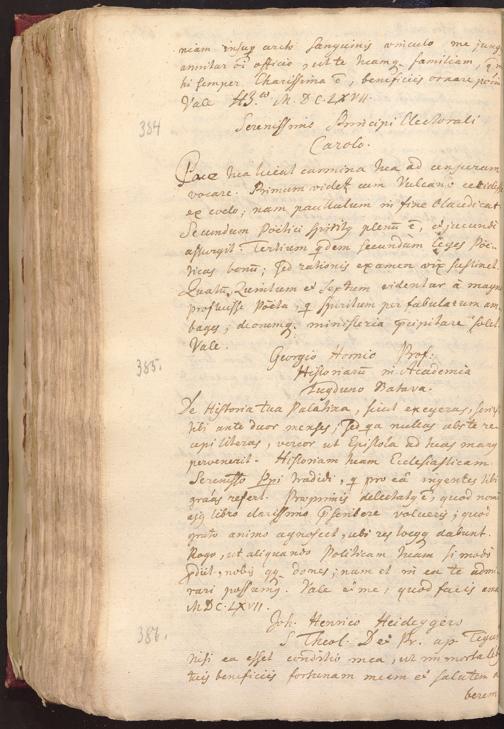 niam insup arcto sanguinis vinculo me jung
annitar oi officio, ut te tuamq familiam, q m
hi semper Charissima ē, beneficiis ornare possim
Vale M. DC. LXVII.
384
Serenissimo Principi Electorali
Carolo.
Pace tua liceat carmina tua ad censuram
vocare. Primum videt cum Vulcano cecidisse
ex coelo; nam paullulum in fine claudicat
Secundum Poëtici spirity plenū ē, et jucundi
assurgit. Tertium qdem secundum leges Poë-
ticas bonū; sed rationis examen vix sustinet.
Quatū, Quintum et Sextum videntur à magno
profluisse Poëta, q spiritum per fabularum am
bages, deorumq ministeria pcipitare solet.
Vale.
385.
Georgio Hornio Prof:
Historiarū in Academia
Lugduno Batava.
De Historia tua Palatina, sicut exegeras, scripsi
tibi ante duos menses; sed qa nullas abs te re
cepi literas, vereor ut Epistola ad tuas manus
pervenerit. Historiam tuam Ecclesiasticam
Serenissō Ppi tradidi, q pro eâ ingentes tibi
grāas refert. Inprimis delectatq ē, quod nomē
ejq libro clarissimo pscribere volueris; quod
grato animo agnoscet, ubi res locqq dabunt.
Rogo, ut aliquando Politicam tuam si modò
pdiit, nobis qq dones; nam et in ea te admi
rari possumq. Vale et me, quod facis ama
M DC. LXVII.
386.
Joh. Henrico Heideggero
S. Theol. D. et Pr. ap. Tigur
Nisi ea esset conditio mea, ut immortalib
tuis beneficiis fortunam meam et salutem
berem